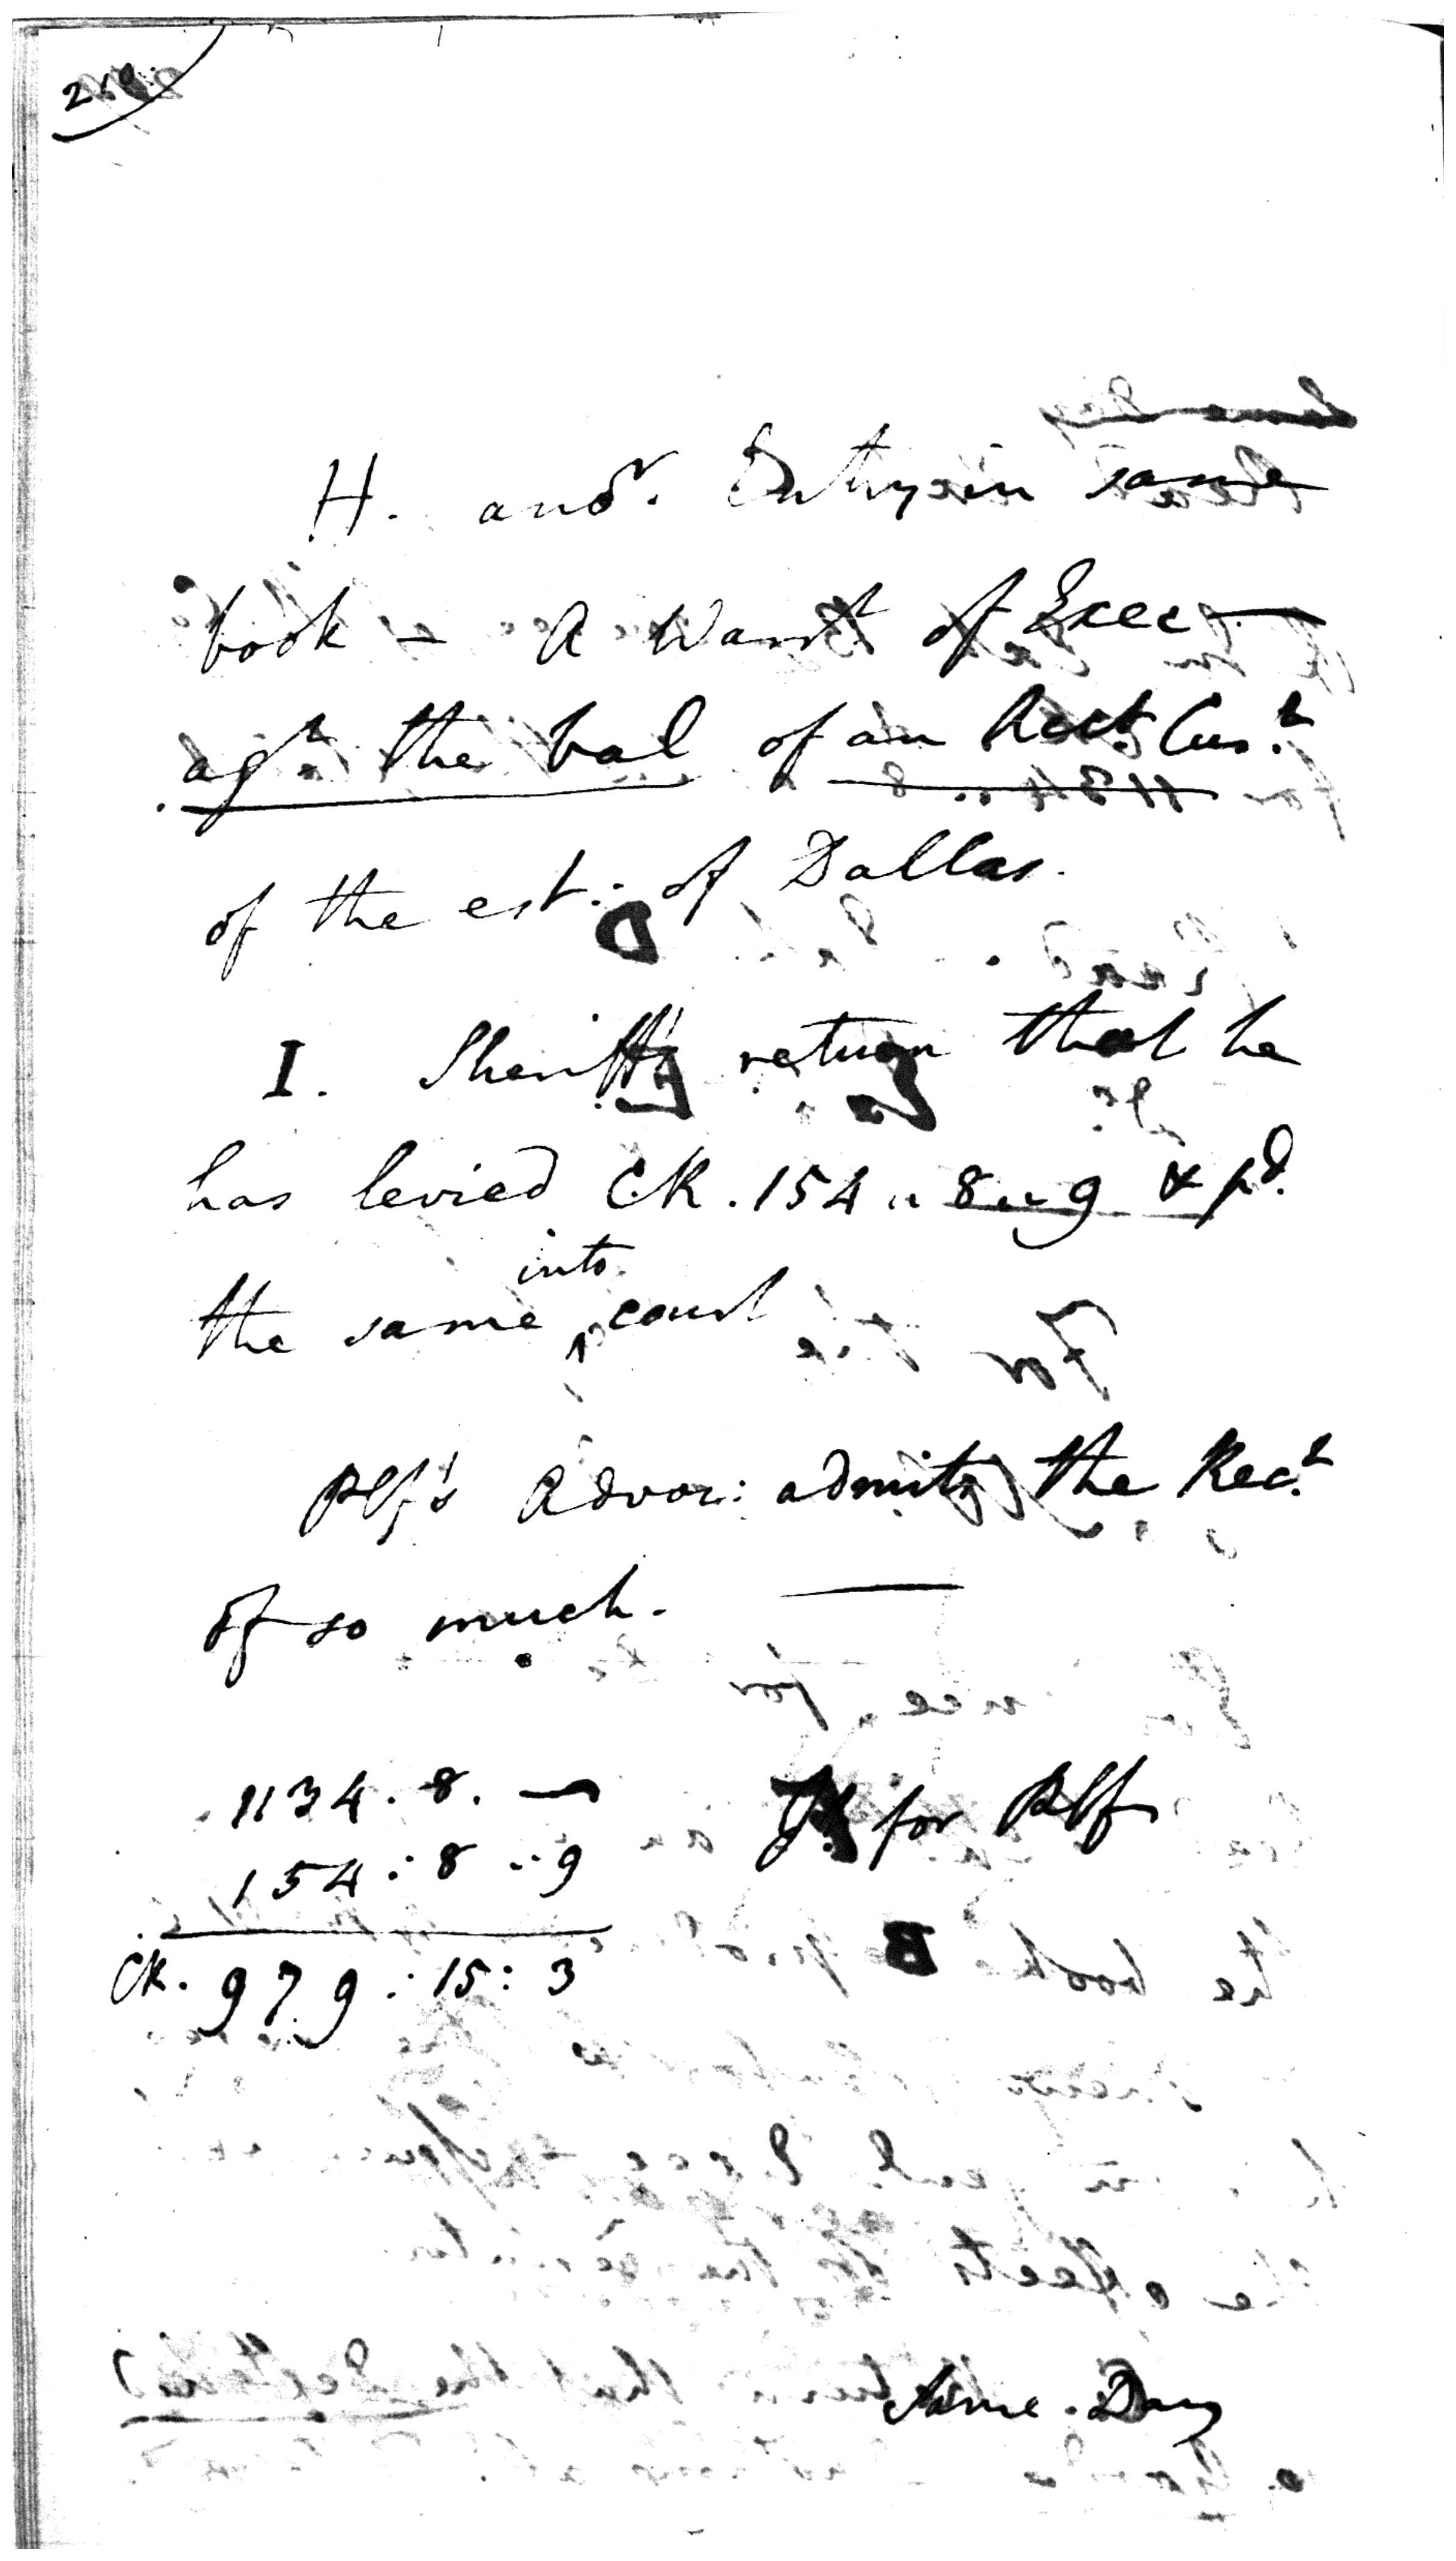 H. anor. Entry in same
book – A Warrt of Exec –
agt the bal of an Acct Curt
of the est: of Dallas.
I. Sheriff's return that he
has levied CK. 154 " 8 " 9 & pd.
the same into court
Plf's Advoc: admits the Rect
of so much. —
1134. 8. — for Plf
154 : 8 : 9
CK. 979 : 15 : 3
Same. Day